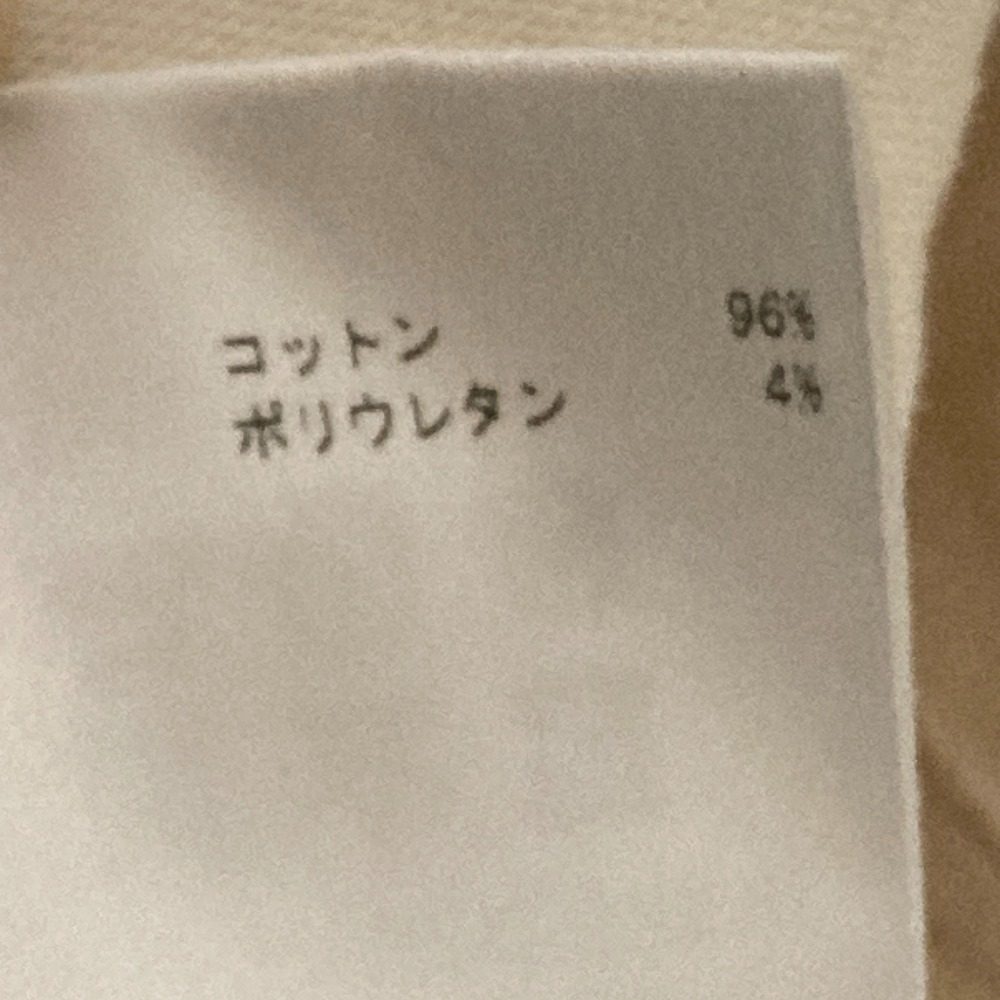 コットン 96%
ポリウレタン 4%